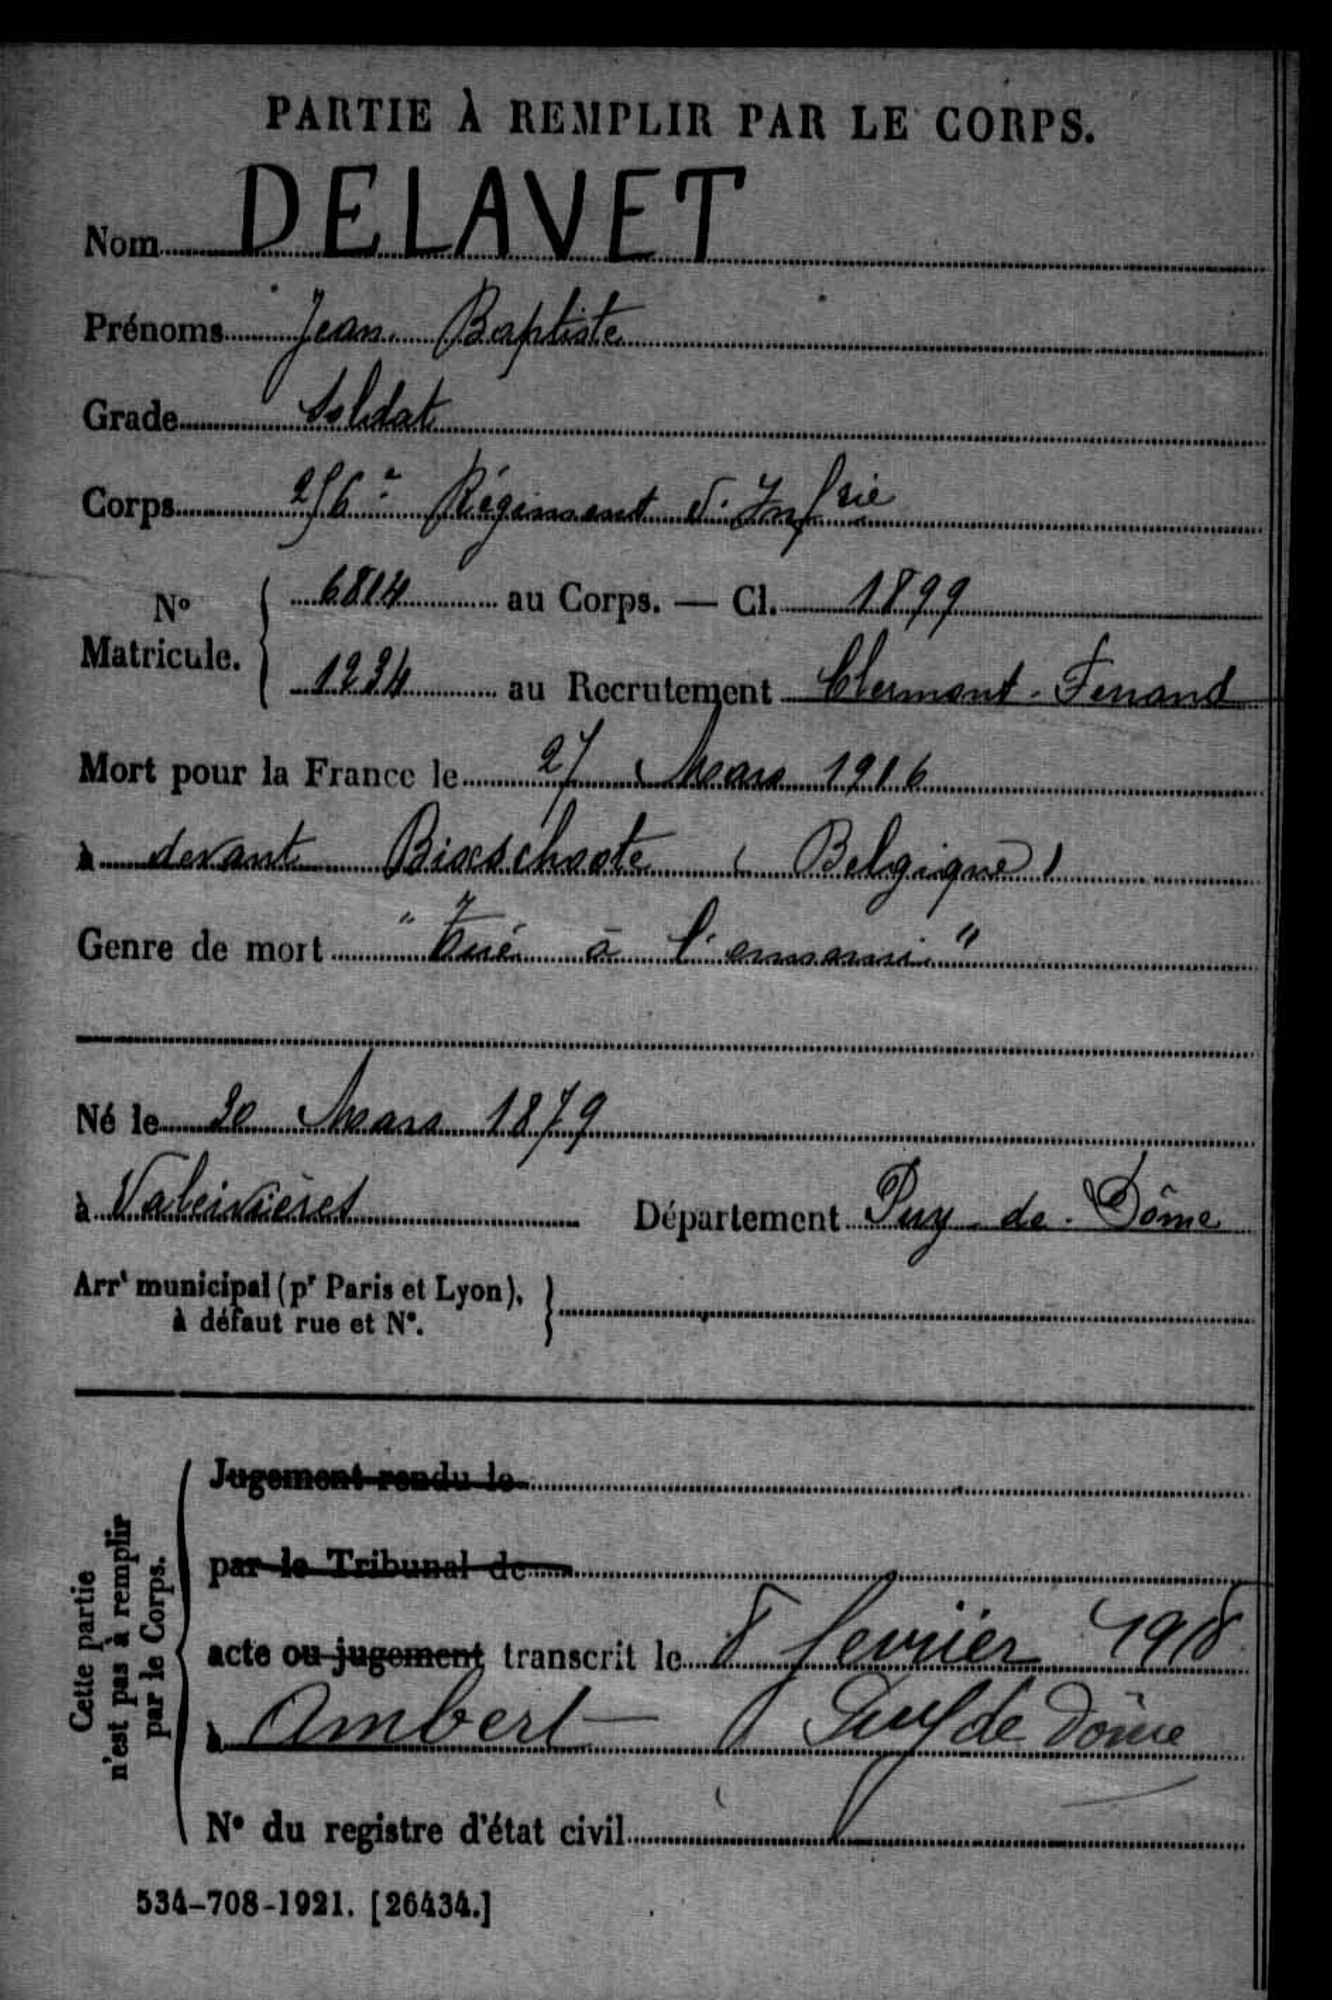 PARTIE À REMPLIR PAR LE CORPS.
Nom DELAVET
Prénoms Jean Baptiste
Grade Soldat
Corps 256e Régiment d'Infrie
No Matricule. 6814 au Corps. — Cl. 1899
1234 au Recrutement Clermont-Ferrand
Mort pour la France le 27 Mars 1916
à devant Bixschoote (Belgique)
Genre de mort "Tué à l'ennemi"
Né le 20 Mars 1879
à Valcivières Département Puy-de-Dôme
Arrt municipal (pr Paris et Lyon),
à défaut rue et No.
Cette partie
n'est pas à remplir
par le Corps.
Jugement rendu le
par le Tribunal de
acte ou jugement transcrit le 8 février 1918
à Ambert Puy de Dôme
No du registre d'état civil
534-708-1921. [26434.]